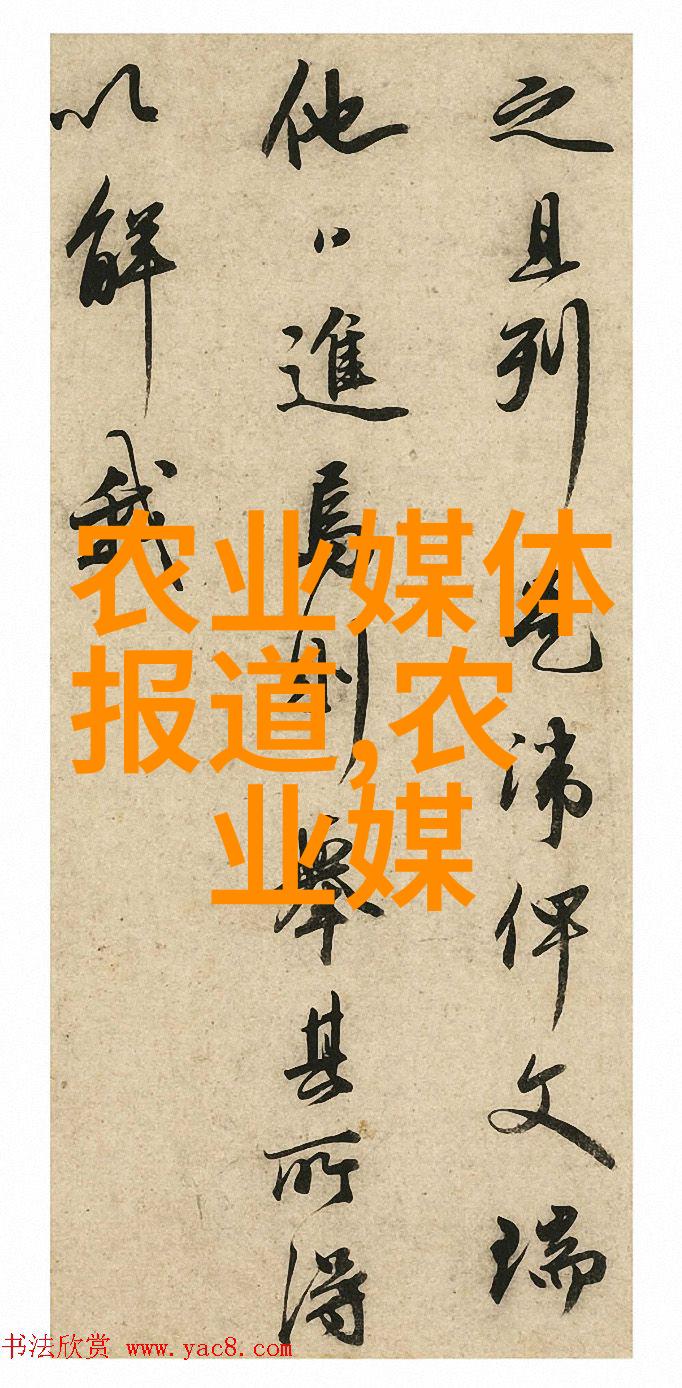 之且列俾文瑞
他日進焉則舉其所得
以解我
农业媒体
报道,农
业媒
书法欣赏 www.yac8.com